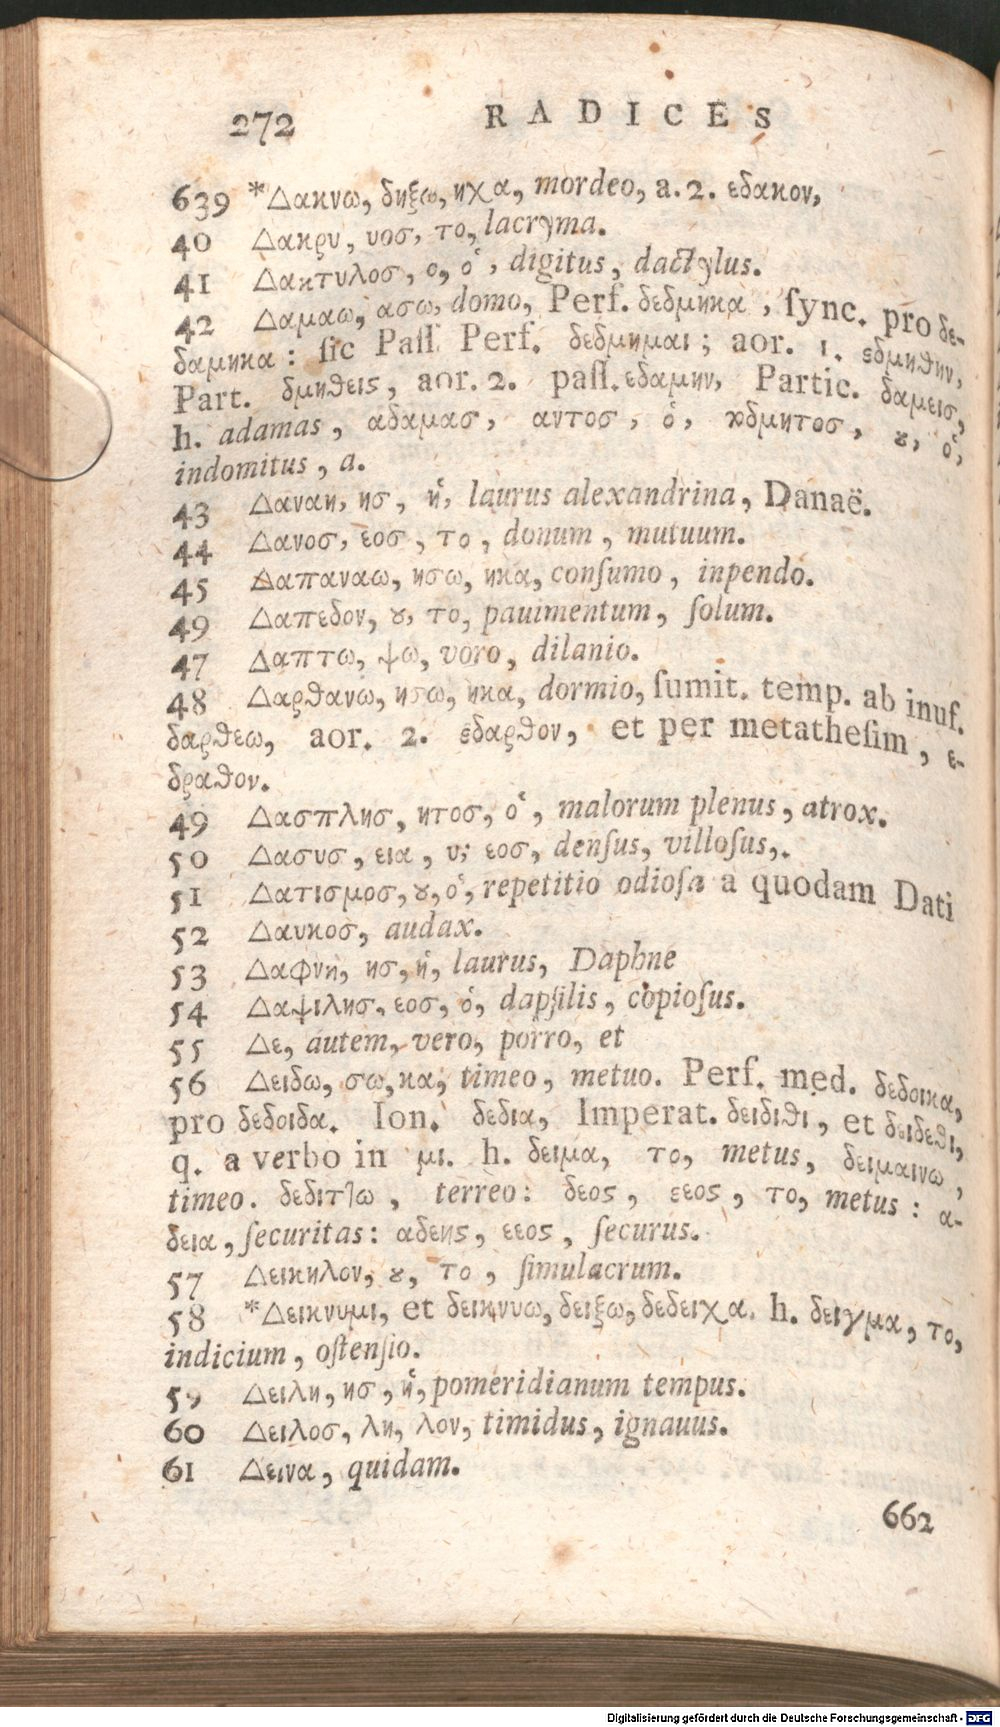 272 RADICES
639 *Δακνω, δηξω, ηχα, mordeo, a. 2. εδακον,
40 Δακρυ, υοσ, το, lacryma.
41 Δακτυλοσ, ο, ὁ, digitus, dactylus.
42 Δαμαω, ασω, domo, Perf. δεδμηκα, ſync. pro δε-
δαμηκα: ſic Paſſ. Perf. δεδμημαι; aor. 1. εδμηθην,
Part. δμηθεις, aor. 2. paſſ. εδαμην, Partic. δαμεισ,
h. adamas, αδαμασ, αντοσ, ὁ, ϰδμητοσ, ȣ, ὁ,
indomitus, a.
43 Δαναη, ησ, ἡ, laurus alexandrina, Danaë.
44 Δανοσ, εοσ, το, donum, mutuum.
45 Δαπαναω, ησω, ηκα, conſumo, inpendo.
49 Δαπεδον, ȣ, το, pauimentum, ſolum.
47 Δαπτω, ψω, voro, dilanio.
48 Δαρθανω, ησω, ηκα, dormio, ſumit. temp. ab inuſ.
δαρθεω, aor. 2. εδαρθον, et per metatheſim, ε-
δραθον.
49 Δασπλησ, ητοσ, ὁ, malorum plenus, atrox.
50 Δασυς, εια, υ; εοσ, denſus, villoſus,.
51 Δατισμος, ȣ, ὁ, repetitio odioſa a quodam Dati
52 Δαυκοσ, audax.
53 Δαφνη, ησ, ἡ, laurus, Daphne
54 Δαψιλησ, εοσ, ὁ, dapſilis, copioſus.
55 Δε, autem, vero, porro, et
56 Δειδω, σω, κα, timeo, metuo. Perf. med. δεδοικα,
pro δεδοιδα. Ion. δεδια, Imperat. δειδιθι, et δειδεθι,
q. a verbo in μι. h. δειμα, το, metus, δειμαινω,
timeo. δεδιτ]ω, terreo: δεος, εεος, το, metus: α-
δεια, ſecuritas: αδεης, εεος, ſecurus.
57 Δεικηλον, ȣ, το, ſimulacrum.
58 *Δεικνυμι, et δεικνυω, δειξω, δεδειχα. h. δειγμα, το,
indicium, oſtenſio.
59 Δειλη, ησ, ἡ, pomeridianum tempus.
60 Δειλοσ, λη, λον, timidus, ignauus.
61 Δεινα, quidam.
662
Digitalisierung gefördert durch die Deutsche Forschungsgemeinschaft - DFG